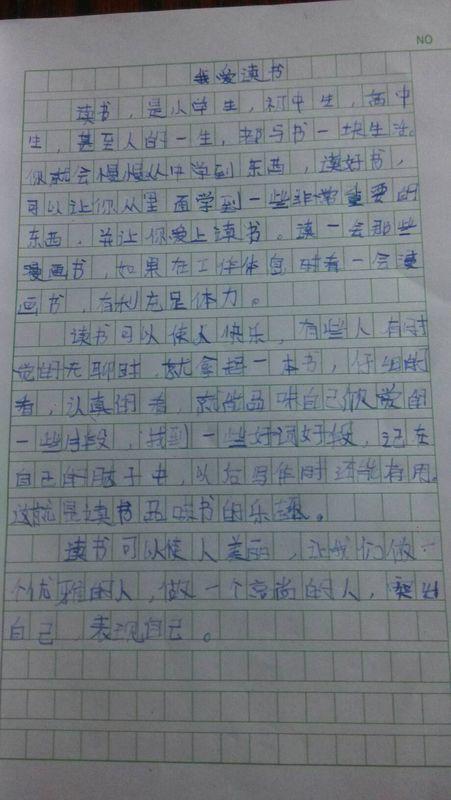 NO
我爱读书
读书，是小学生，初中生，高中
生，甚至人的一生，都与书一块生活。
你就会慢慢从中学到东西，读好书，
可以让你从里面学到一些非常重要的
东西，并让你爱上读书。读一会那些
漫画书，如果在工作休息时看一会漫
画书，有利充足体力。
读书可以使人快乐，有些人有时
觉的无聊时，就拿起一本书，仔细的
看，认真的看，就能品味自己做觉的
一些片段，找到一些好词好段，记在
自己的脑子中，以后写作时还能有用。
这就是读书品味书的乐趣。
读书可以使人美丽，让我们做一
个优雅的人，做一个高尚的人，突出
自己，表现自己。